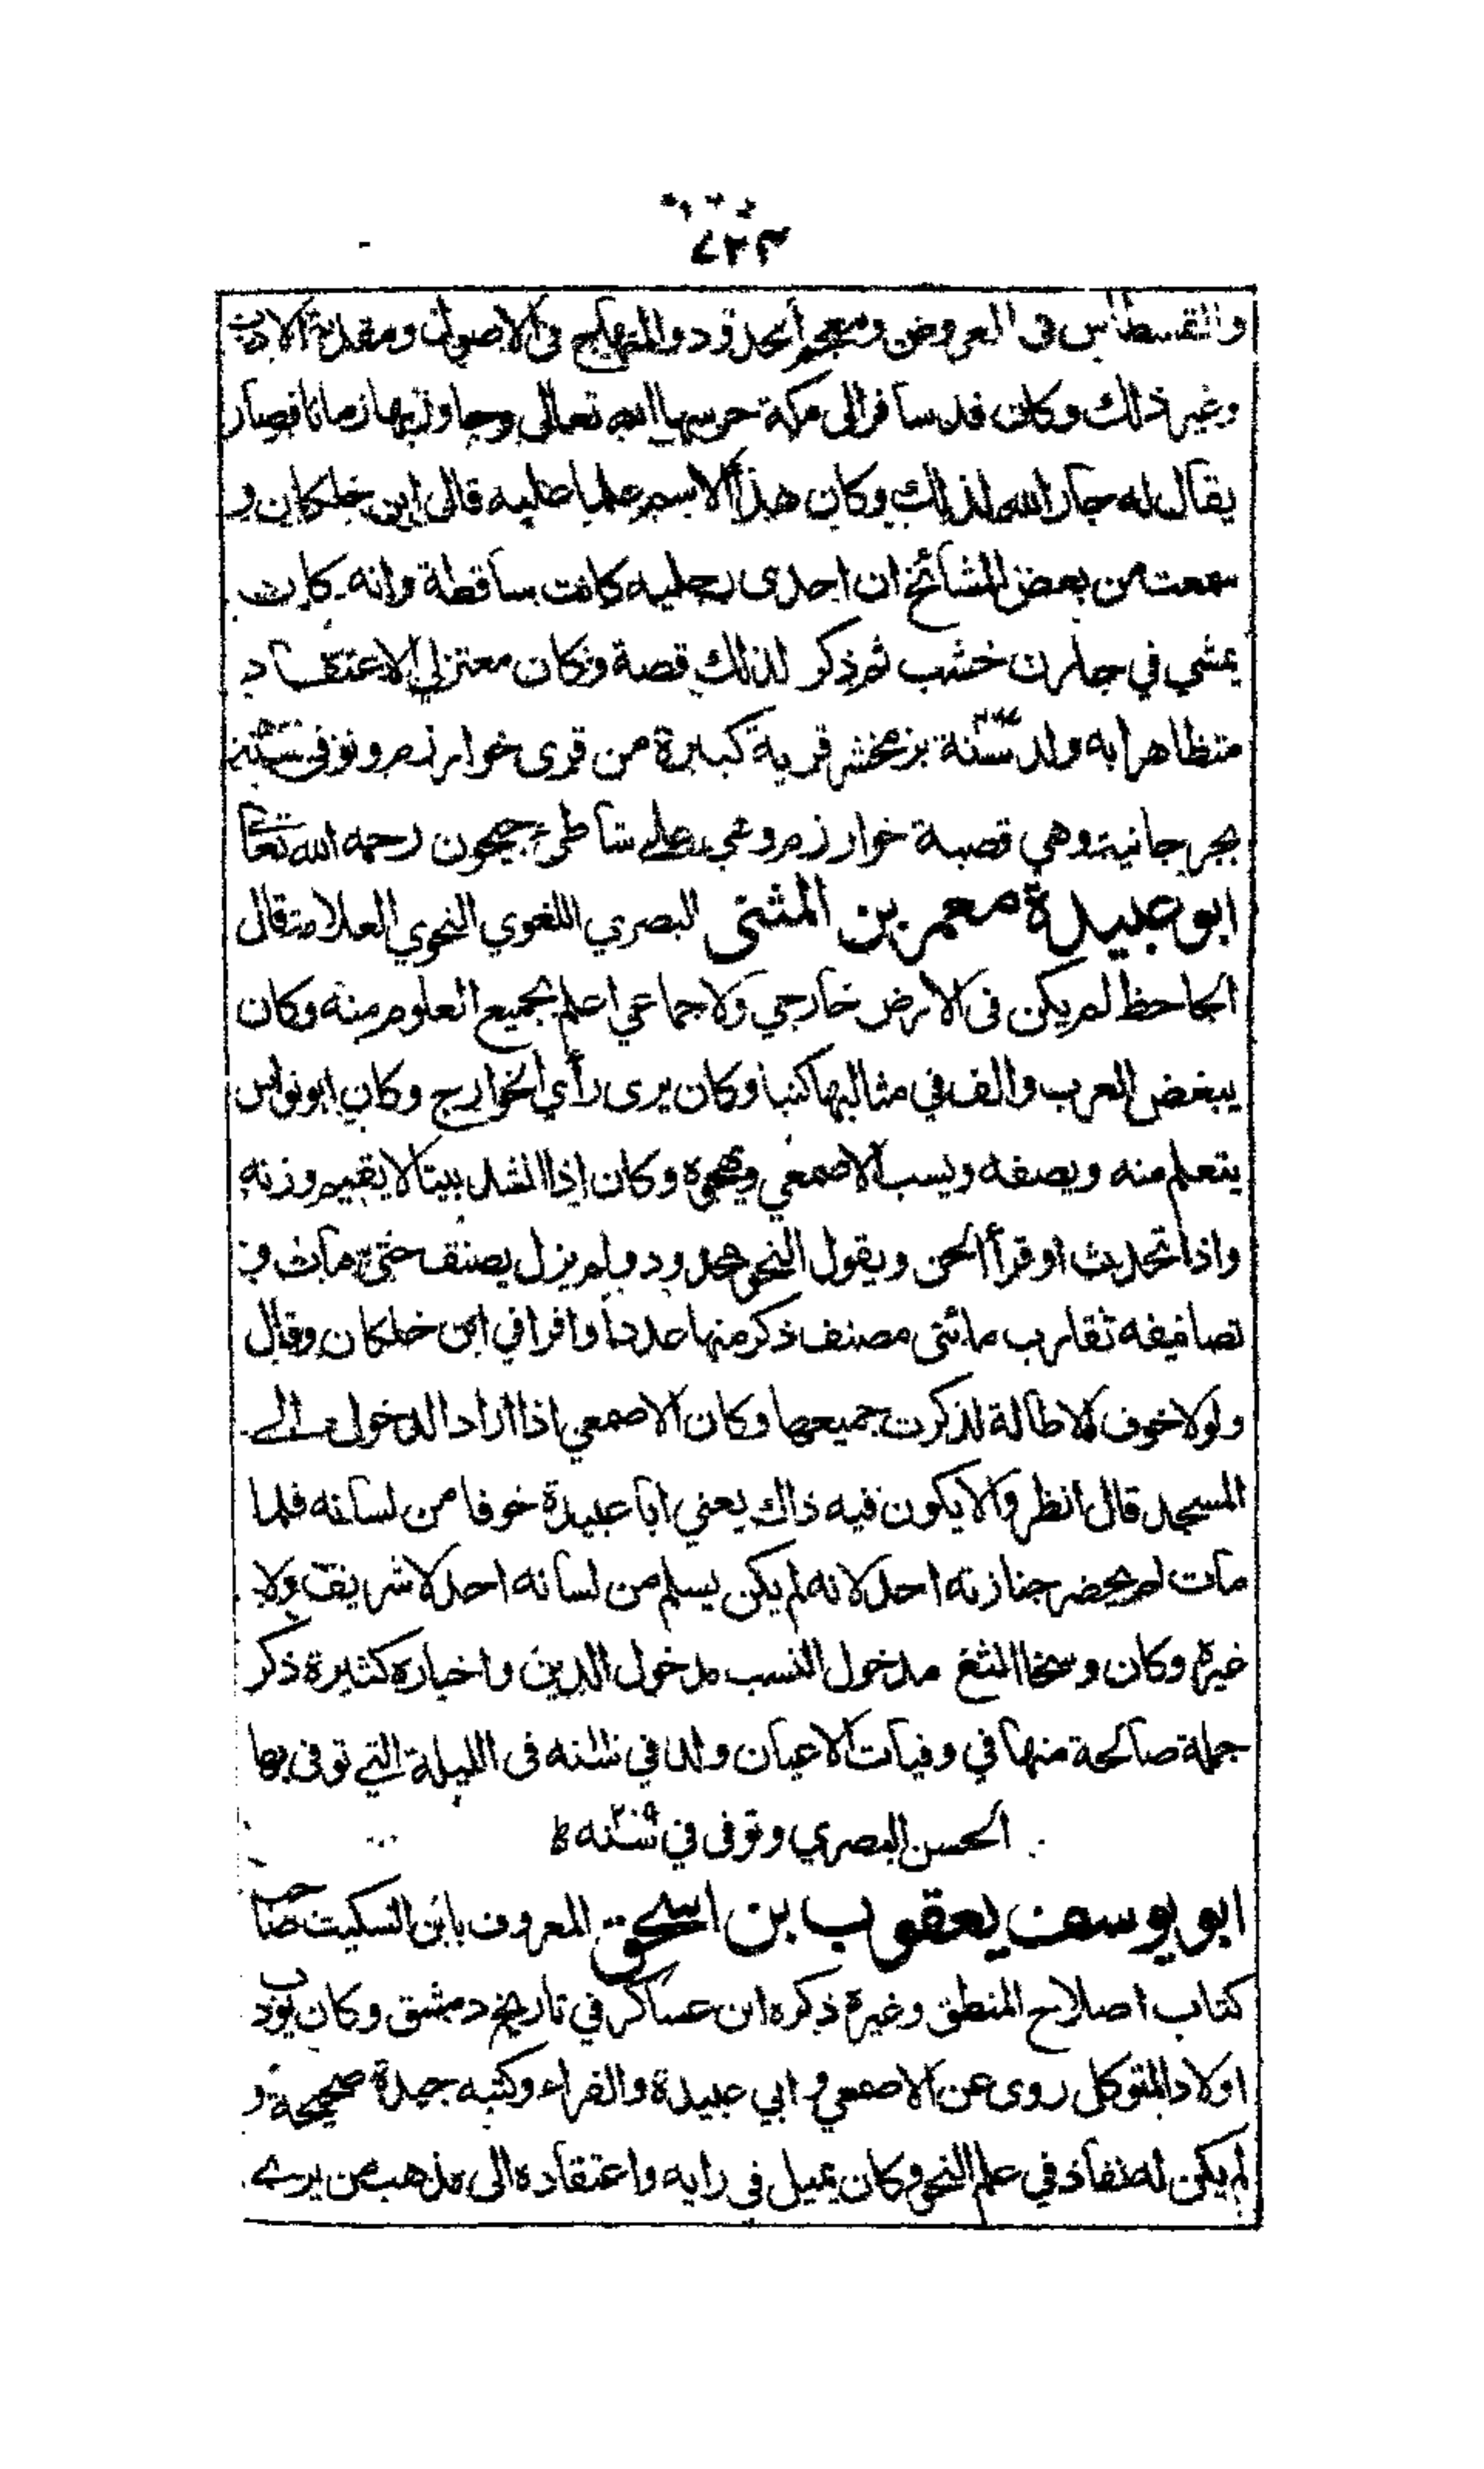 ٧٢٣
والقسطاس فى العروض ومعجم الحدود والمنهاج فى الاصول ومقدمة الادب
وغير ذلك وكان قد سافر الى مكة حرسها الله تعالى وجاور بها زمانا فصار
يقال له جار الله لذلك وكان هذا الاسم علما عليه قال ابن خلكان و
سمعت من بعض المشائخ ان احدى رجليه كانت ساقطة وانه كان
يمشي في جارن خشب ثم ذكر لذلك قصة وكان معتزلي الاعتقاد
متظاهرا به ولد سنة بزمخشر قرية كبيرة من قرى خوارزم وتوفى سنة
بجرجانية وهي قصبة خوارزم وهي على شاطئ جيحون رحمه الله تعالى
ابو عبيدة معمر بن المثنى البصري اللغوي النحوي العلامة قال
الجاحظ لم يكن فى الارض خارجي ولا جماعي اعلم بجميع العلوم منه وكان
يبغض العرب والف في مثالبها كتبا وكان يرى رأي الخوارج وكان ابو نواس
يتعلم منه ويصفه ويسب الاصمعي ويهجوه وكان اذا انشد بيتا لا يقيم وزنه
واذا تحدث او قرأ الحن ويقول النحو محدود ولم يزل يصنف حتى مات و
تصانيفه تقارب مائتى مصنف ذكر منها عددا وافرا في ابن خلكان وقال
ولولا خوف الاطالة لذكرت جميعها وكان الاصمعي اذا اراد الدخول الى
المسجد قال انظروا لا يكون فيه ذاك يعني ابا عبيدة خوفا من لسانه فلما
مات لم يحضر جنازته احد لانه لم يكن يسلم من لسانه احد لا شريف ولا
غيره وكان وسخا الثغ مدخول النسب مدخول الدين واخباره كثيرة ذكر
جملة صالحة منها في وفيات الاعيان ولد في سنه فى الليلة التي توفى بها
الحسن البصري وتوفى في سنه
ابو يوسف يعقوب بن اسحق المعروف بابن السكيت صاحب
كتاب اصلاح المنطق وغيره ذكره ابن عساكر في تاريخ دمشق وكان يؤدب
اولاد المتوكل روى عن الاصمعي وابي عبيدة والفراء وكتبه جيدة صحيحة و
لم يكن له نفاذ في علم النحو وكان يميل فى رايه واعتقاده الى مذهب من يرى